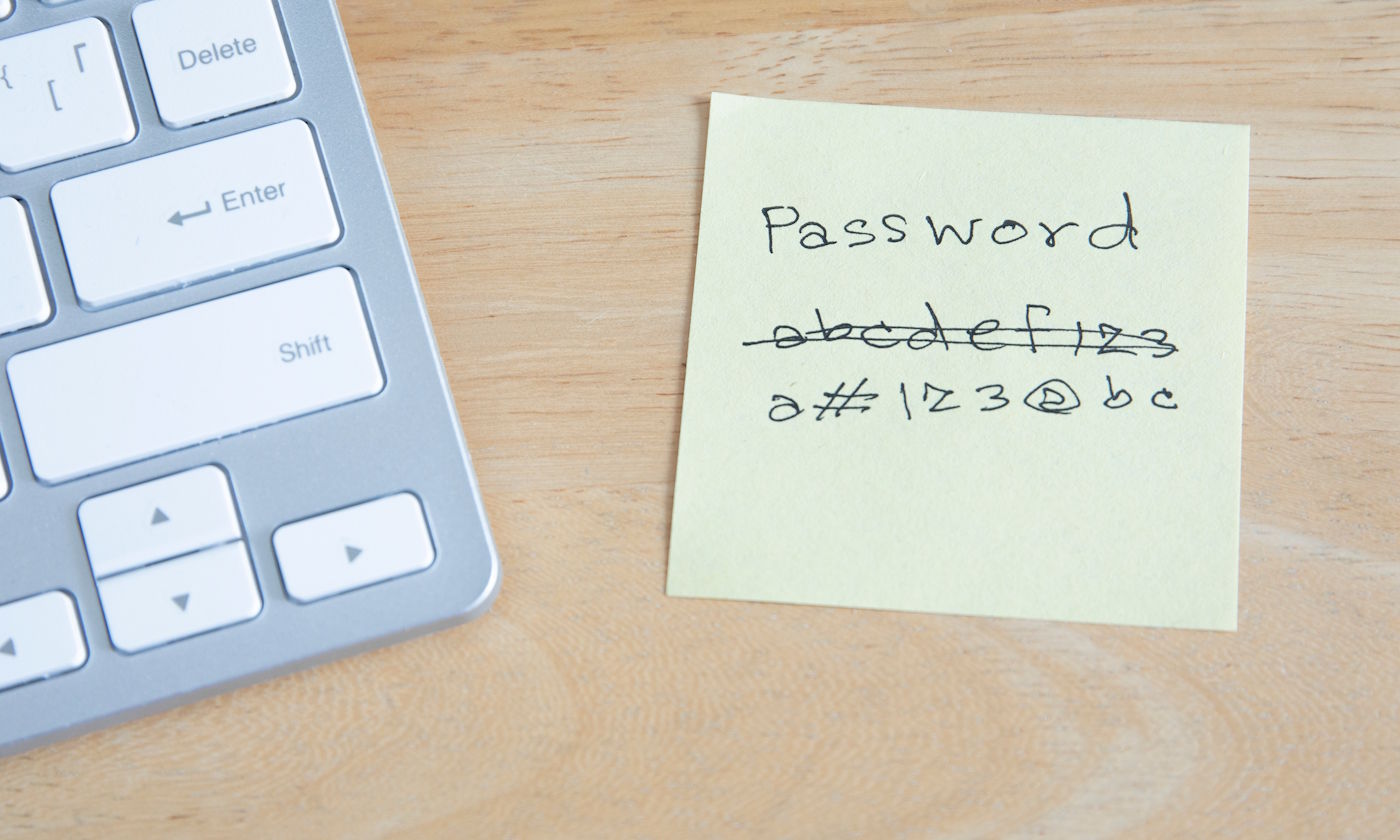 {
[
Delete
Enter
Shift
Password
abcdef123
a#123@bc